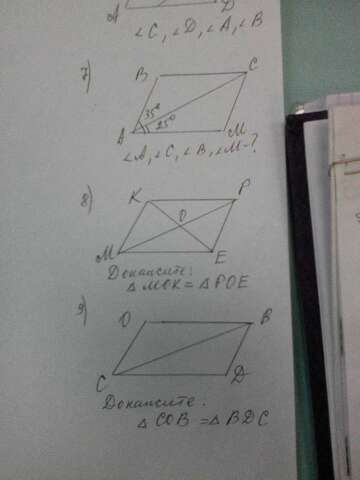 A D
∠C, ∠D, ∠A, ∠B
7)
B C
35°
25°
A M
∠A, ∠C, ∠B, ∠M-?
8)
K P
O
M E
Докажите:
△MOK = △POE
9)
O B
C D
Докажите:
△COB = △BDC